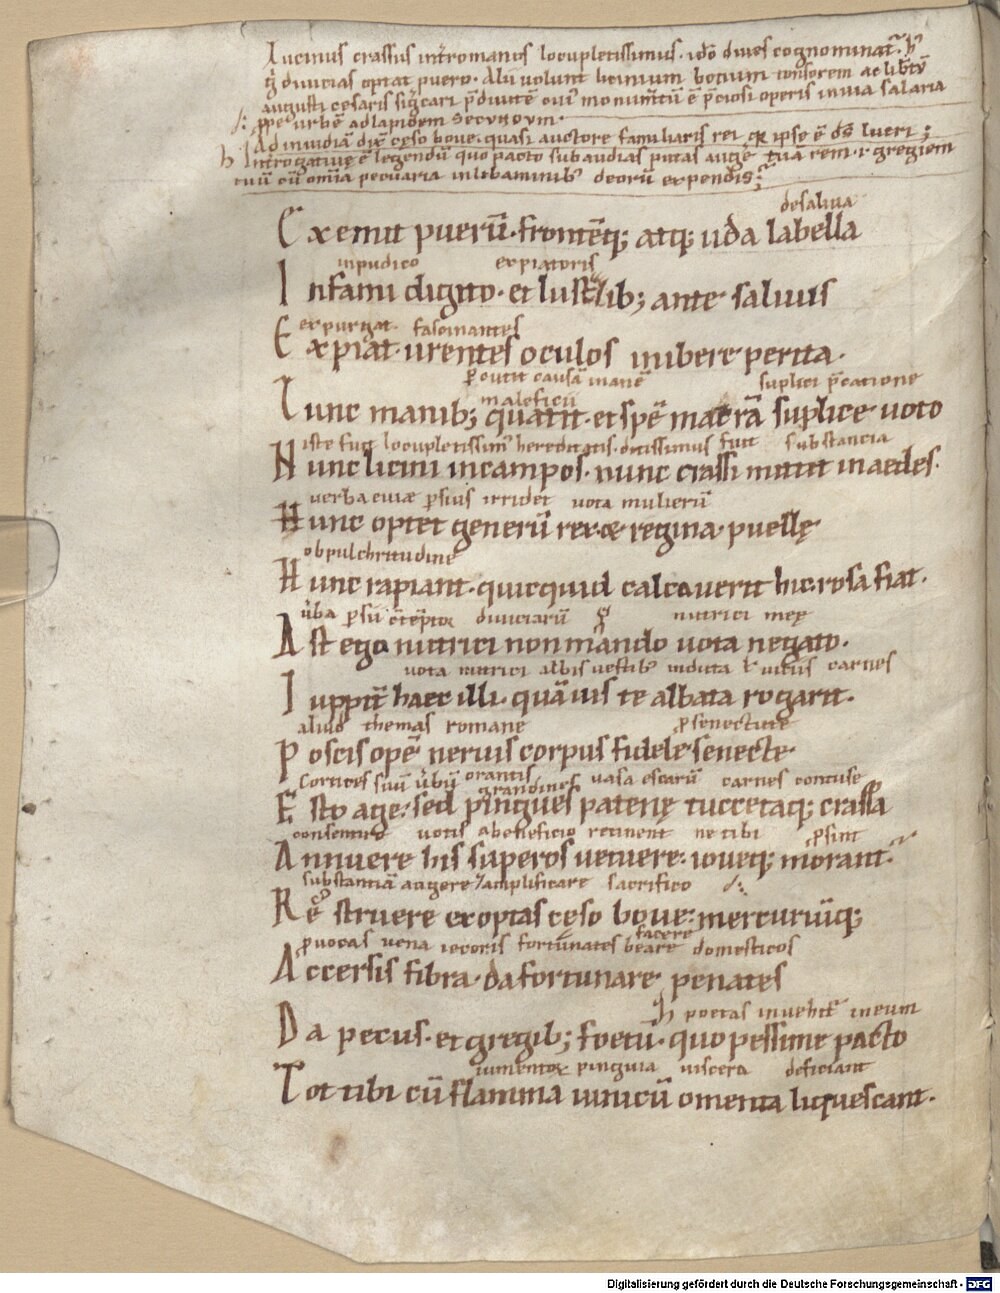 Lucinus crassus int̄ romanos locupletissimus. idō diues cognominat᷑. h̄
diuicias optat puero. Alii uolunt licinium tonsorem ac lib̄tū
augusti cesaris sig̅cari p̄diuitē cui᷒ monumtū ē p̄ciosi operis in uia salaria
ppe urbē ad lapidem secundum.
Ad inuidiā dix̄ cęso boue. quasi auctore familiaris rei ipse ē d̄s lucri;
Introgatiuę ē legendū quo pacto subaudias putas augē tuā rem. gregiem
tuū cū om̄ia pecuaria in libaminib᷒ deorū expendis;
desaliua
Exemit puerū. frontēq; atq; uda labella
inpudico expiatoris
Infami digito. et lustālib; ante saliuis
expurgat. fascinantes
Expiat. urentes oculos inibere perita.
p̄cutit causā inanē suplici p̄catione
maleficii
Tunc manib; quatit. et spē macrā suplice uoto
iste fuit locupletissim᷒ hereditatis. ditissimus fuit substancia
Nunc licini in campos. nunc crassi mittit in aedes.
uerba euiæ p̄sius irridet uota mulierū
Hunc optet generū rex & regina. puellę
ob pulchritudinē
Hunc rapiant. quicquid calcauerit hic. rosa fiat.
ūba p̄sii diuiciarū nutrici meę
Ast ego nutrici non mando uota negato.
uota nutrici albis uestib᷒ induta carnes
Iuppit̄ haec illi. quāuis te albata rogarit.
aliud themas romane p senectute
Poscis opē neruis corpus fidele senecte.
orantis uasa escarū carnes concise
grandines
Esto age. sed pingues patenę tuccetaq; crassa
consentire uotis a beneficio retinent ne tibi p̄sint
Annuere his superos uetuere. iouēq; morant᷑.
substantiā augere amplificare sacrifico
Rē struere exoptas cęso boue. mercuriūq;
facere
p̄uocas uena iecoris fortunates beare domesticos
Accersis fibra. da fortunare penates
poetas inuehit᷑ in eum
Da pecus. et gregib; foetū. quo pessime pacto
iumentor̄ pinguia uiscera deficiant
Tot tibi cū flamma iunicū omenta liquescant.
Digitalisierung gefördert durch die Deutsche Forschungsgemeinschaft - DFG